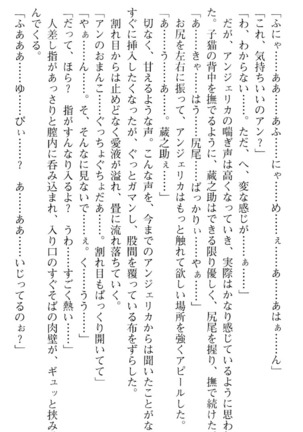 「ふにゃ……ああ……ふ……にゃ……め……ぇ……あ……あはぁ……ん」
「これ、気持ちいいのアン？」
「わ、わからない……。ただ、へ、変な感じが……ぁ……」
だが、アンジェリカの喘ぎ声は高くなっていき、実際はかなり感じているように思わ
れる。子猫の背中を撫でるように、蔵之助はできる限り優しく、尻尾を握り、撫で続けた。
「あ……きゃ……はう……尻尾……ばっかりぃ……やぁ……」
お尻を左右に振って、アンジェリカはもっと触れて欲しい場所を強くアピールした。
「あ……う……あ……。蔵之助ぇ……」
切なく、甘えるような声。こんな声を、今までのアンジェリカからは聞いたことがな
すぐに挿入したくなったが、ぐっとガマンし、股間を覆っている布をずらした。
割れ目からは止めどなく愛液が溢れ、畳に流れ落ちていく。
「アンのおまんこ……ぐっちょぐちょだあ……。割れ目もぱっくり開いてて」
「やぁ……ん……。そ、そんなに見ないで……ぇ。く……うう……」
「だって、ほら？　指がすんなり入るよ？　うわ……すごく熱い……」
人差し指があっさりと膣内に呑み込まれ、入り口のすぐそばの肉壁が、ギュッと挟み
んでくる。
「ふあああ……ゆ……び……？　あ……ああ……いじってるのぉ？」